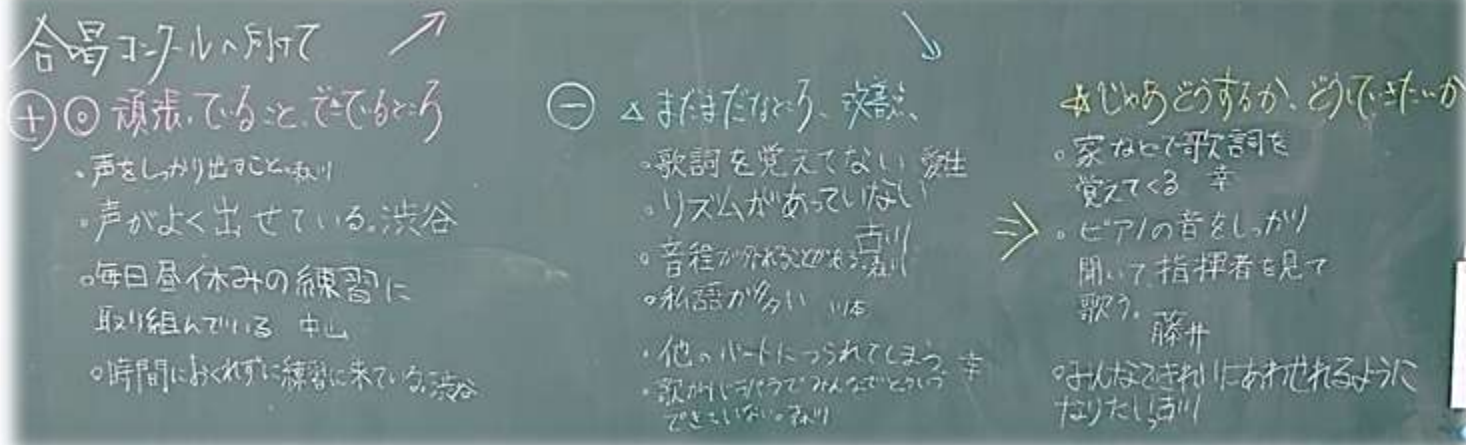 合唱コンクールへ向けて
⊕◎頑張っていること、できているところ
・声をしっかり出すこと。
・声がよく出せている。渋谷
。毎日昼休みの練習に
取り組んでいる 中山
。時間におくれずに練習に来ている。渋谷
⊖ △まだまだなところ、改善点
。歌詞を覚えてない 愛生
・リズムがあっていない
古川
。音程が外れることがある。
。私語が多い 川本
・他のパートにつられてしまう 幸
・歌がバラバラでみんなで
できていない。
☆じゃあどうするか、どうしていきたいか
。家などで歌詞を
覚えてくる 幸
。ピアノの音をしっかり
聞いて指揮者を見て
歌う。
藤井
。みんなできれいにあわせれるように
なりたい。古川